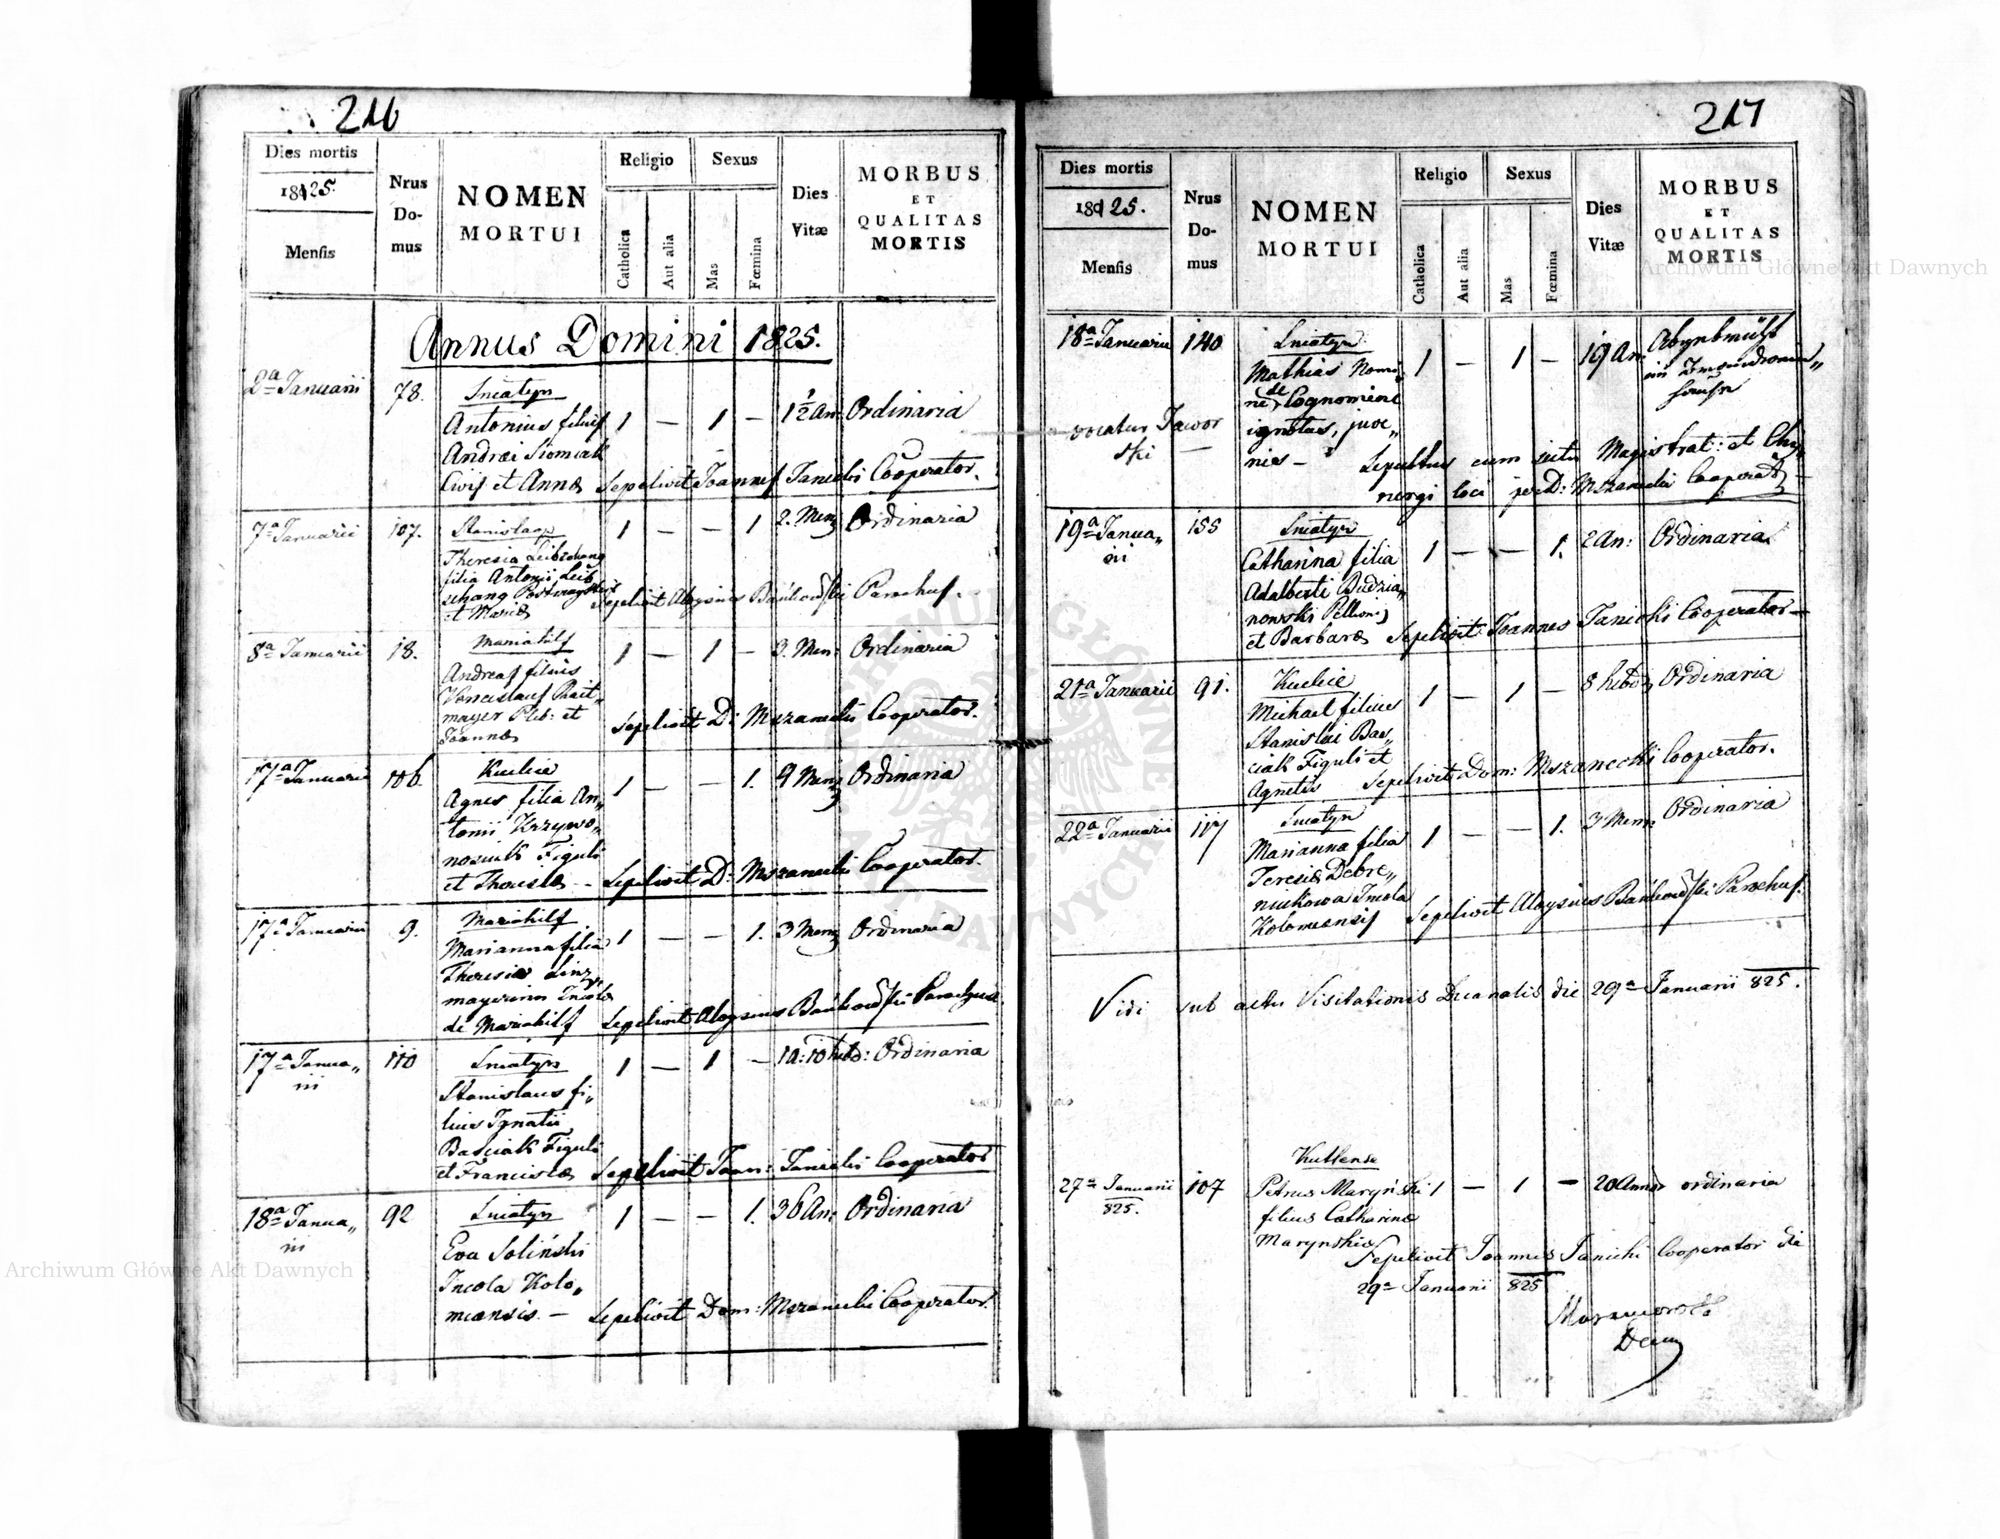 216
Dies mortis
1825.
Mensis
Nrus Do- mus
NOMEN MORTUI
Religio
Catholica
Aut alia
Sexus
Mas
Fœmina
Dies Vitæ
MORBUS ET QUALITAS MORTIS
Annus Domini 1825.
2a Januarii 78. Sniatyn 1 — 1 — 1 1/2 An: Ordinaria
Antonius filius
Andreæ
Civis et Annæ Sepelivit Joannes Janicki Cooperator.
7a Januarii 107. 1 — — 1 2. Men: Ordinaria
Theresia
filia Antonii
et Mariæ Sepelivit Aloysius Parochus.
8a Januarii 18. Mariahilf 1 — 1 — 3. Men: Ordinaria
Andreas filius
Venceslaus
mayer Pleb: et
Joannæ Sepelivit D: Mszanecki Cooperator.
17a Januarii 106. Kutlie 1 — — 1. 9 Men: Ordinaria
Agnes filia An„
tonii Krzywo„
Figuli
et Theresiæ — Sepelivit D: Mszanecki Cooperator.
17a Januarii 9. Mariahilf 1 — — 1. 3 Men: Ordinaria
Marianna filia
Theresiæ Linz
Incola
de Mariahilf Sepelivit Aloysius Parochus.
17a Janua„ 110 Sniatyn 1 — 1 — 1 a: 10 hebd: Ordinaria
rii
Stanislaus fi„
lius Ignatii
Basciak Figuli
et Franciscæ Sepelivit Joan: Janicki Cooperator
18a Janua„ 92 Sniatyn 1 — — 1. 36 An: Ordinaria
rii
Eva Soliński
Incola Kolo„
meansis. — Sepelivit Dom: Mszanecki Cooperator.
217
Dies mortis
1825.
Mensis
Nrus Do- mus
NOMEN MORTUI
Religio
Catholica
Aut alia
Sexus
Mas
Fœmina
Dies Vitæ
MORBUS ET QUALITAS MORTIS
18a Januarii 140 Sniatyn 1 — 1 — 19 An:
Mathias Nomi„
ne, de Cognomine
vocatur Jawor ignotus, juve„
ski — nis — Sepultus cum scitu Magistrat: et
loci per D: Mszanecki Cooperat:
19a Janua„ 155 Sniatyn 1 — — 1. 2 An: Ordinaria
rii
Catharina filia
Adalberti Budzia„
nowski
et Barbaræ Sepelivit Joannes Janicki Cooperator —
21a Januarii 91. Kutlie 1 — 1 — 8 hebd: Ordinaria
Michael filius
Stanislai Bas„
ciak Figuli et
Agnetis Sepelivit Dom: Mszanecki Cooperator.
22a Januarii 117 Sniatyn 1 — — 1. 3 Men: Ordinaria
Marianna filia
Teresiæ Debre„
niukowa Incola
Kolomeansis Sepelivit Aloysius Parochus.
Vidi sub actu Visitationis Decanalis die 29a Januarii 825.
Kuttense
27a Januarii 107 Petrus Maryński 1 — 1 — 20 Annor ordinaria
825. filius Catharinæ
Marynskiæ Sepelivit Joannes Janicki Cooperator die
29a Januarii 825
Archiwum Główne Akt Dawnych
Archiwum Główne Akt Dawnych
ARCHIWUM GŁÓWNE AKT DAWNYCH